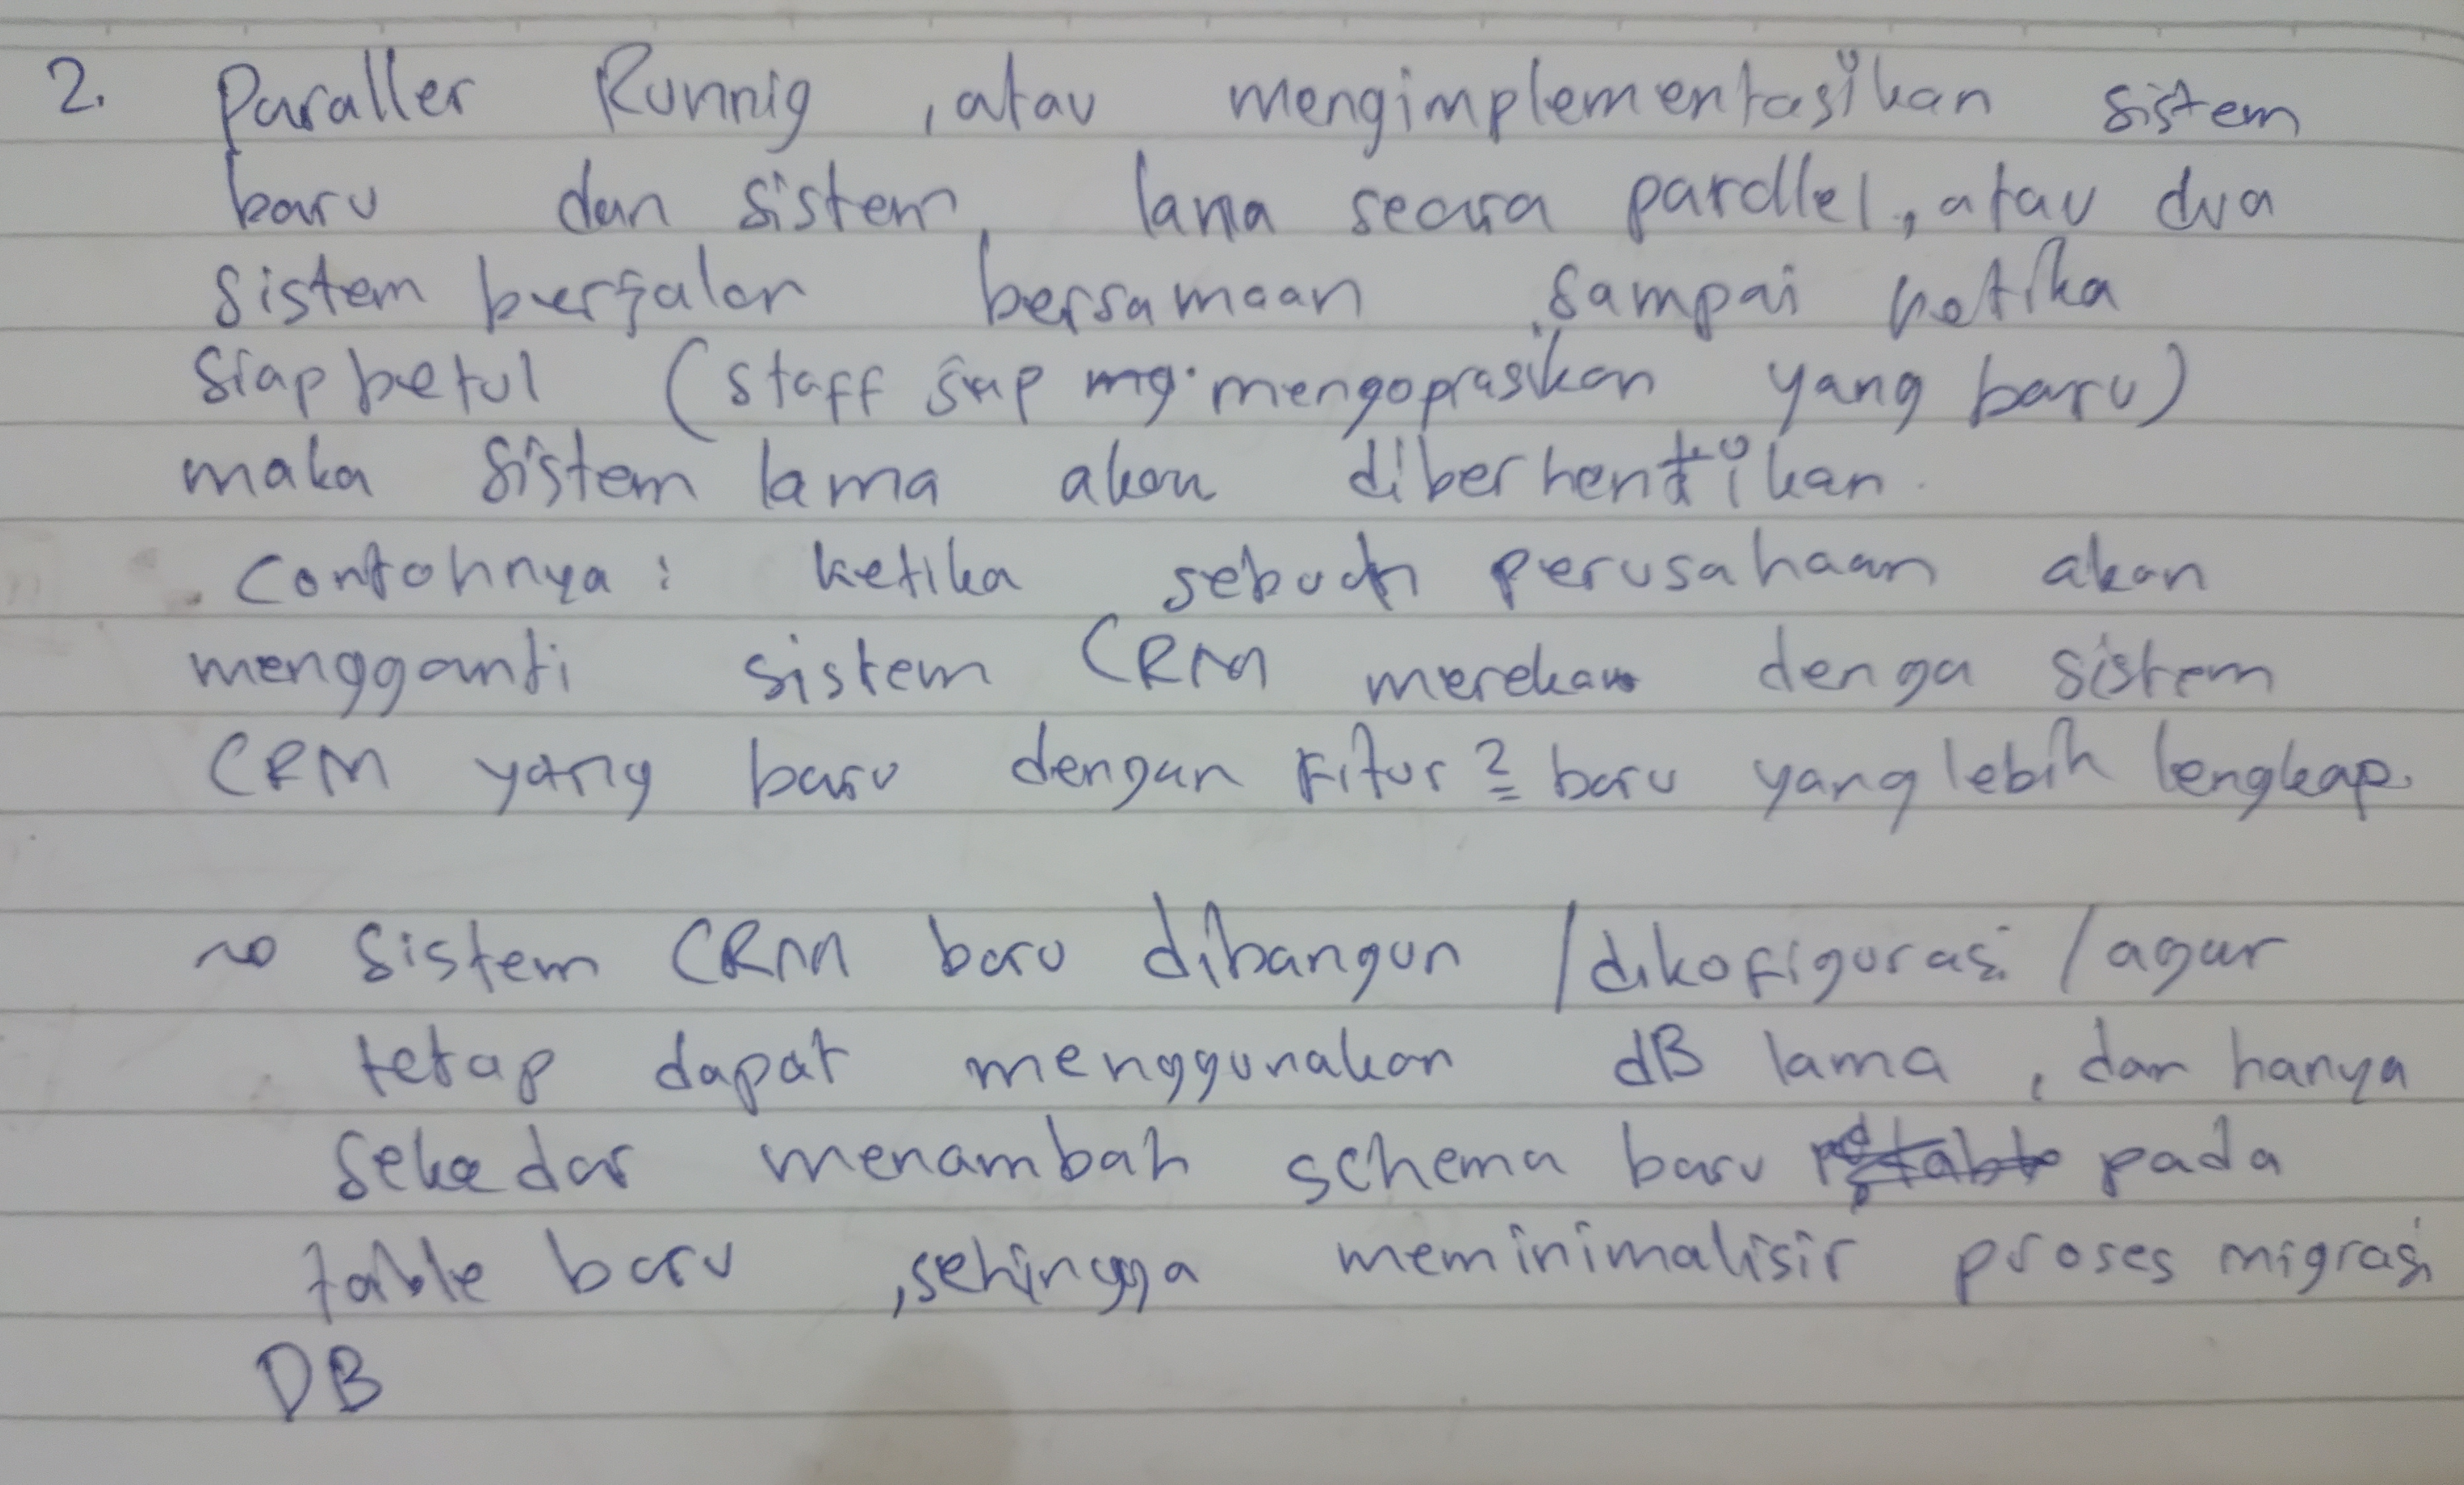 2. Paraller Runnig , atau mengimplementasikan sistem
baru dan sistem lama secara parallel, atau dua
sistem berjalan bersamaan sampai ketika
siap betul (staff siap mengoprasikan yang baru)
maka sistem lama akan diberhentikan.
Contohnya : ketika sebuah perusahaan akan
mengganti sistem CRM mereka denga sistem
CRM yang baru dengan Fitur 2 baru yang lebih lengkap.
~o Sistem CRM baru dibangun / dikofigurasi / agar
tetap dapat menggunakan dB lama , dan hanya
sekedar menambah schema baru pada
table baru , sehingga meminimalisir proses migrasi
DB